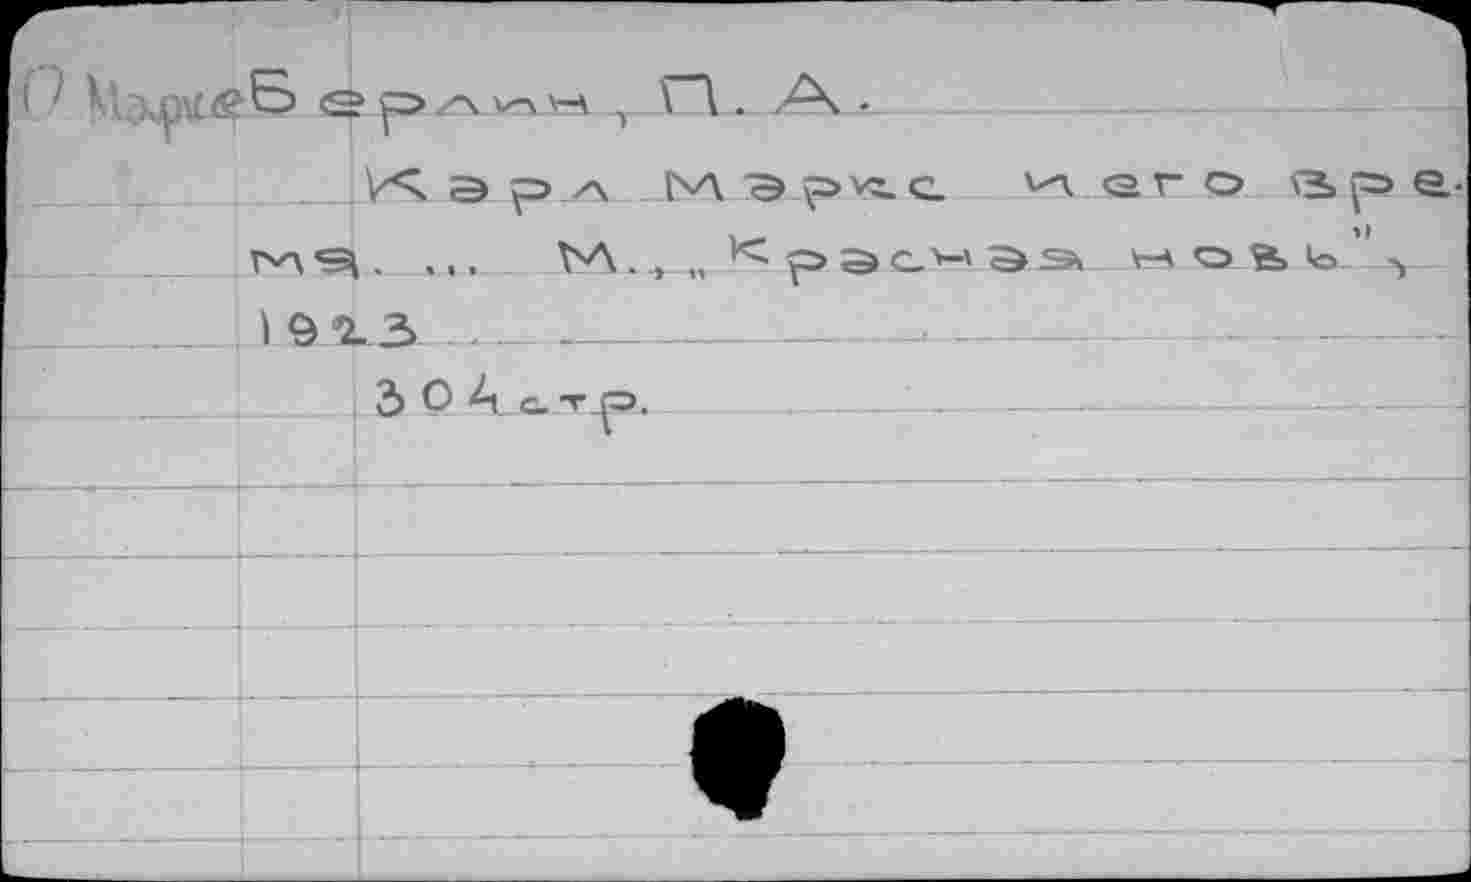 О Марксе Берлин, П. А.
Карл Маркс и его вре-
мя. ... М., „Красная новь",
1923
304 стр.